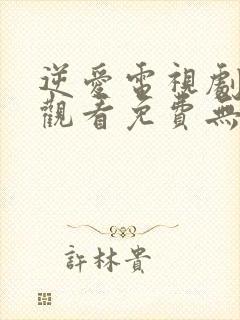 逆愛電視劇
觀看免費無
許林貴